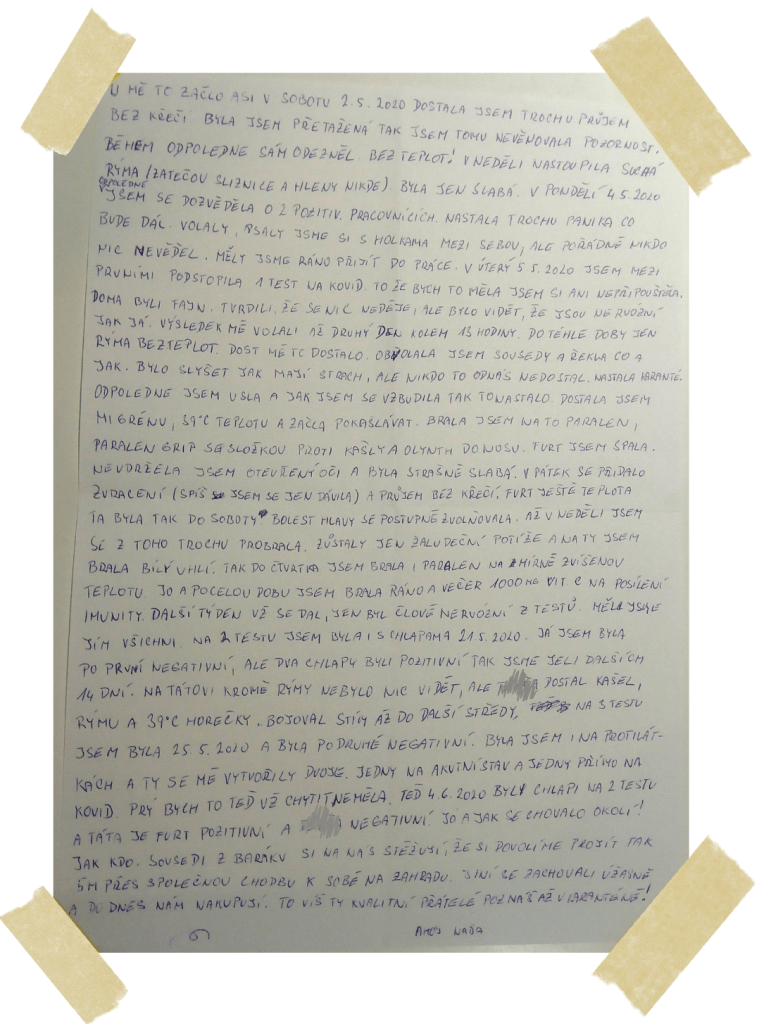 U MĚ TO ZAČLO ASI V SOBOTU 2.5.2020 DOSTALA JSEM TROCHU PRŮJEM
BEZ KŘEČI. BYLA JSEM PŘETAŽENÁ TAK JSEM TOMU NEVĚNOVALA POZORNOST.
BĚHEM ODPOLEDNE SÁM ODEZNĚL. BEZ TEPLOT! V NEDĚLI NASTOUPILA SUCHÁ
RÝMA (ZATEČOU SLIZNICE A HLENY NIKDE). BYLA JEN SLABÁ. V PONDĚLÍ 4.5.2020
ODPOLEDNE
JSEM SE DOZVĚDĚLA O 2 POZITIV. PRACOVNÍCÍCH. NASTALA TROCHU PANIKA CO
BUDE DÁL. VOLALY, PSALY JSME SI S HOLKAMA MEZI SEBOU, ALE POŘÁDNĚ NIKDO
NIC NEVĚDĚL. MĚLY JSME RÁNO PŘIJÍT DO PRÁCE. V ÚTERÝ 5.5.2020 JSEM MEZI
PRVNÍMI PODSTOPILA 1 TEST NA KOVID. TO ŽE BYCH TO MĚLA JSEM SI ANI NEPŘIPOUŠTĚLA.
DOMA BYLI FAJN. TVRDILI, ŽE SE NIC NEDĚJE, ALE BYLO VIDĚT, ŽE JSOU NERVÓZNÍ
JAK JÁ. VÝSLEDEK MĚ VOLALI AŽ DRUHÝ DEN KOLEM 13 HODINY. DO TÉHLE DOBY JEN
RÝMA BEZ TEPLOT. DOST MĚ TO DOSTALO. OBVOLALA JSEM SOUSEDY A ŘEKLA CO A
JAK. BYLO SLYŠET JAK MAJÍ STRACH, ALE NIKDO TO OD NÁS NEDOSTAL. NASTALA KARANTÉ.
ODPOLEDNE JSEM USLA A JAK JSEM SE VZBUDILA TAK TO NASTALO. DOSTALA JSEM
MIGRÉNU, 39°C TEPLOTU A ZAČLA POKAŠLÁVAT. BRALA JSEM NA TO PARALEN,
PARALEN GRIP SE SLOŽKOU PROTI KAŠLY A OLYNTH DO NOSU. FURT JSEM SPALA.
NEVDRŽELA JSEM OTEVŘENÝ OČI A BYLA STRAŠNĚ SLABÁ. V PÁTEK SE PŘIDALO
ZVRACENÍ (SPÍŠ JSEM SE JEN DÁVILA) A PRŮJEM BEZ KŘEČÍ. FURT JEŠTĚ TEPLOTA
TA BYLA TAK DO SOBOTY. BOLEST HLAVY SE POSTUPNĚ ZVOLŇOVALA. AŽ V NEDĚLI JSEM
SE Z TOHO TROCHU PROBRALA. ZŮSTALY JEN ŽALUDEČNÍ POTÍŽE A NA TY JSEM
BRALA BÍLÝ UHLÍ. TAK DO ČTVRTKA JSEM BRALA I PARALEN NA MÍRNĚ ZVÍŠENOU
TEPLOTU. JO A PO CELOU DOBU JSEM BRALA RÁNO A VEČER 1000 MG VIT C NA POSÍLENÍ
IMUNITY. DALŠÍ TÝDEN UŽ SE DAL, JEN BYL ČLOVĚ NERVÓZNÍ Z TESTŮ. MĚLI JSME
JÍM VŠICHNI. NA 2 TESTU JSEM BYLA I S CHLAPAMA 21.5.2020. JÁ JSEM BYLA
PO PRVNÍ NEGATIVNÍ, ALE DVA CHLAPY BYLI POZITIVNÍ TAK JSME JELI DALŠÍCH
14 DNÍ. NA TÁTOVI KROMĚ RÝMY NEBYLO NIC VIDĚT, ALE DOSTAL KAŠEL,
RÝMU A 39°C HOREČKY. BOJOVAL S TÍM AŽ DO DALŠÍ STŘEDY. NA 3 TESTU
JSEM BYLA 25.5.2020 A BYLA PODRUHÉ NEGATIVNÍ. BYLA JSEM I NA PROTILÁT-
KÁCH A TY SE MĚ VYTVOŘILY DVOJE. JEDNY NA AKUTNÍ STAV A JEDNY PŘÍMO NA
KOVID. PRÝ BYCH TO TEĎ UŽ CHYTIT NEMĚLA. TEĎ 4.6.2020 BYLY CHLAPI NA 2 TESTU
A TÁTA JE FURT POZITIVNÍ A NEGATIVNÍ. JÓ A JAK SE CHOVALO OKOLÍ!
JAK KDO. SOUSEDI Z BARÁKU SI NA NÁS STĚŽUJÍ, ŽE SI DOVOLÍME PROJÍT TAK
5M PŘES SPOLEČNOU CHODBU K SOBĚ NA ZAHRADU. JINÍ SE ZACHOVALI ÚŽASNĚ
A DO DNES NÁM NAKUPUJÍ. TO VÍŠ TY KVALITNÍ PŘÁTELÉ POZNÁŠ AŽ V KARANTÉNĚ!
AHOJ NAĎA